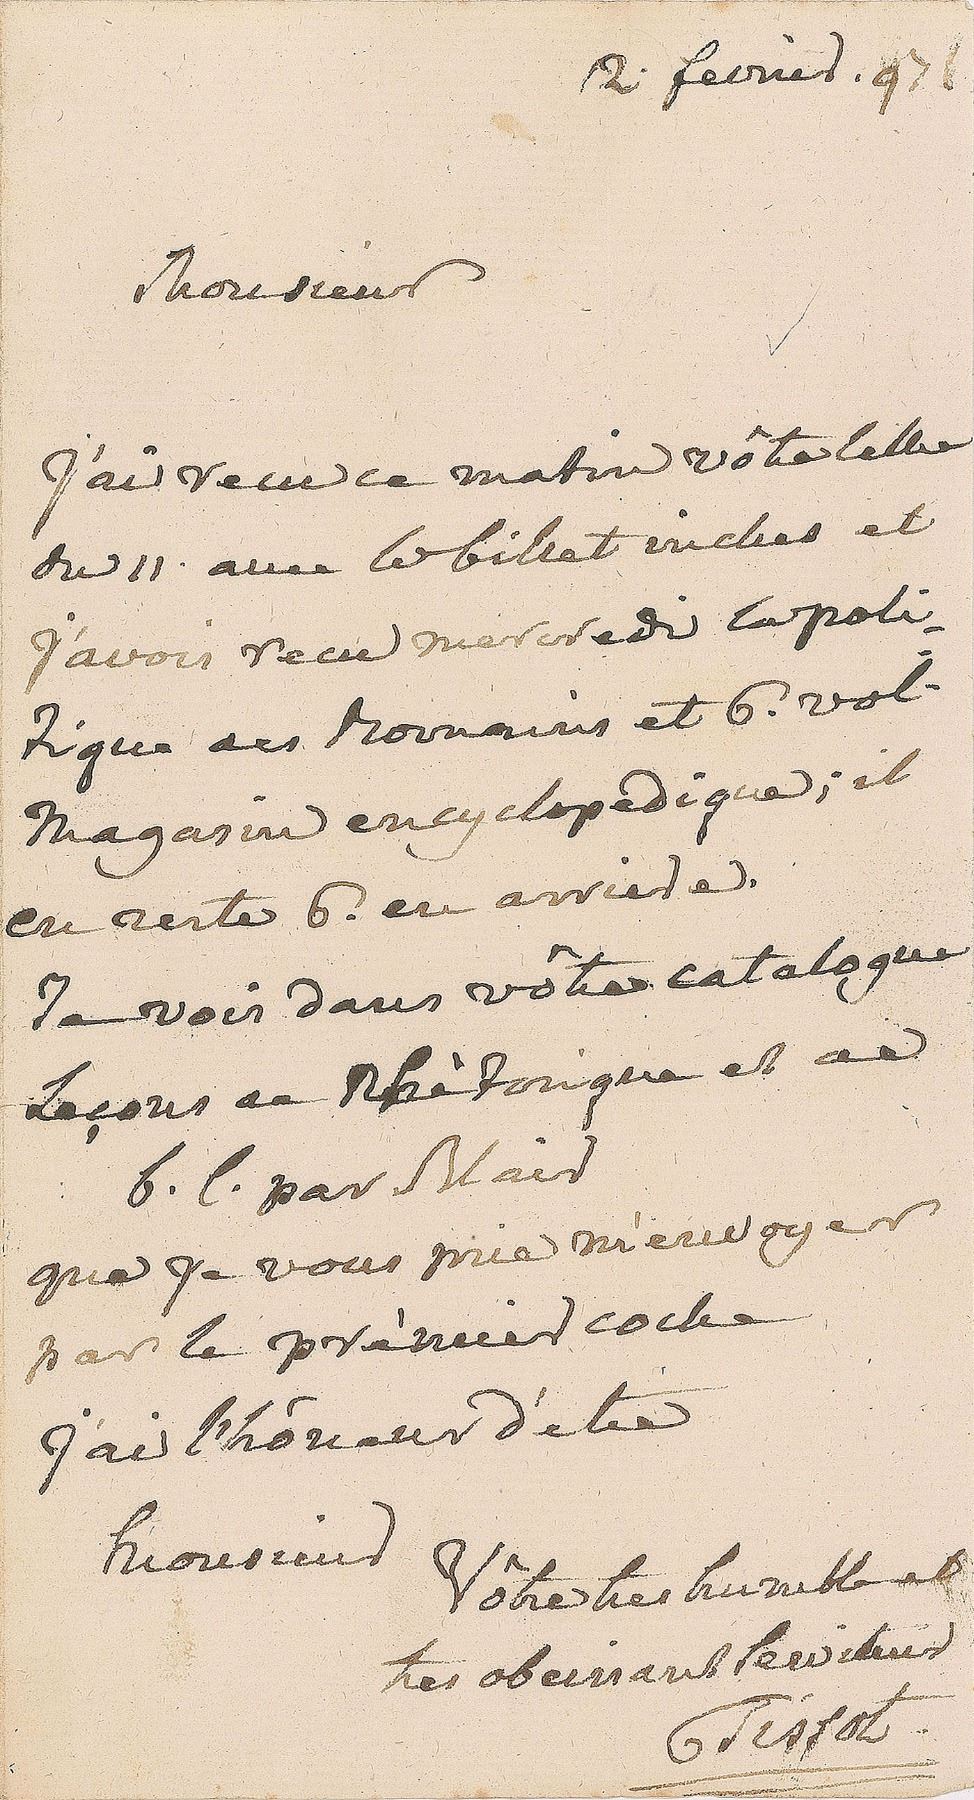 2. fevrier. 97
Monsieur
J'ai recu ce matin vôtre lettre
du 11. avec le billet inclus et
j'avois recu mercredi la poli-
tique des Romains et 6. vol.
Magasin encyclopédique; il
en reste 6. en arriere.
Je vois dans vôtre catalogue
Leçons de Rhétorique et de
b. l. par Blair
que je vous prie m'envoyer
par le prémier coche
j'ai l'hôneur d'etre
Monsieur
Vôtre tres humble et
tres obeissant serviteur
Tissot